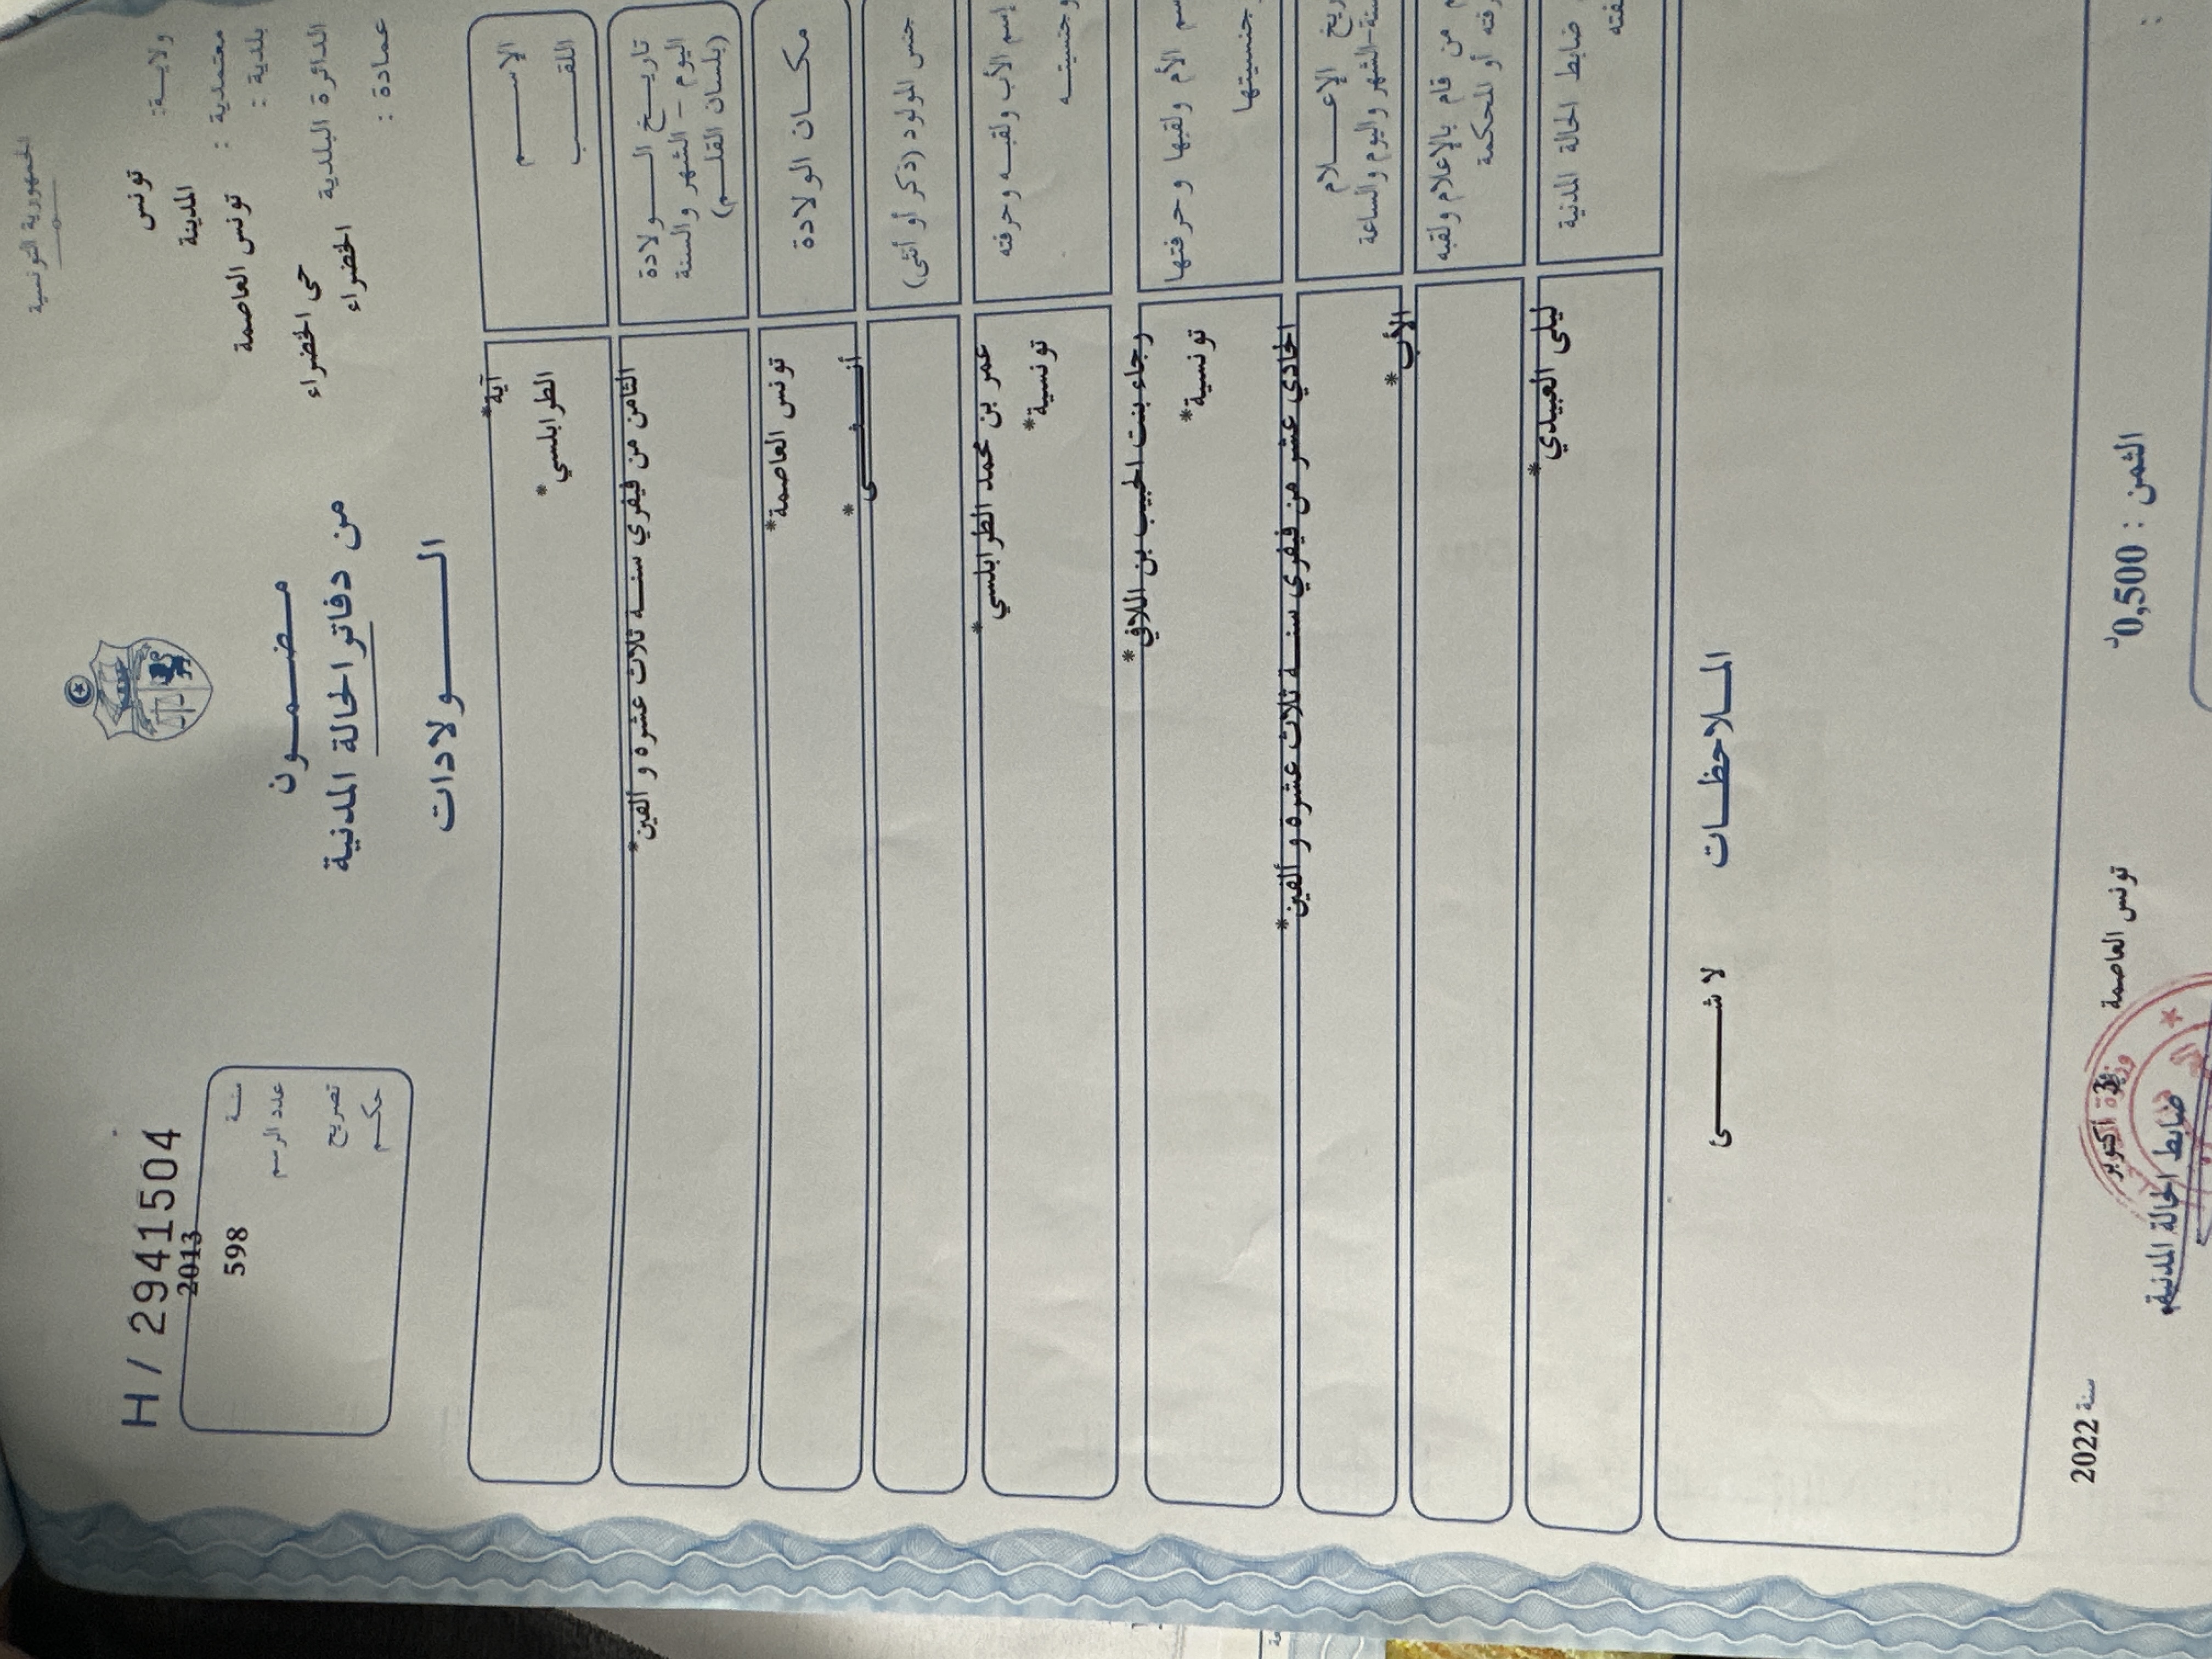 الجمهورية التونسية
ولاية: تونس
معتمدية : المدينة
بلدية : تونس العاصمة
الدائرة البلدية : حى الخضراء
عمادة : الخضراء
H / 2941504
2013 سنة
598 عدد الرسم
تصريح
حكم
مضمون
من دفاتر الحالة المدنية
الولادات
الإسم آية*
اللقب الطرابلسي*
تاريخ الولادة
اليوم - الشهر والسنة
(بلسان القلم)
الثامن من فيفري سنة ثلاث عشرة و ألفين*
مكان الولادة تونس العاصمة*
جنس المولود (ذكر أو أنثى) أنثى*
إسم الأب ولقبه وحرفته عمر بن محمد الطرابلسي*
وجنسيته تونسية*
سم الأم ولقبها وحرفتها رجاء بنت الحبيب بن اللافي*
جنسيتها تونسية*
ريخ الإعلام
سنة-الشهر واليوم والساعة
الحادي عشر من فيفري سنة ثلاث عشرة و ألفين*
من قام بالإعلام ولقبه الأب*
رفته أو المحكمة
ضابط الحالة المدنية ليلى العبيدي*
فته
الملاحظات
لا شى
الثمن : 0,500د
تونس العاصمة أكتوبر سنة 2022
ضابط الحالة المدنية